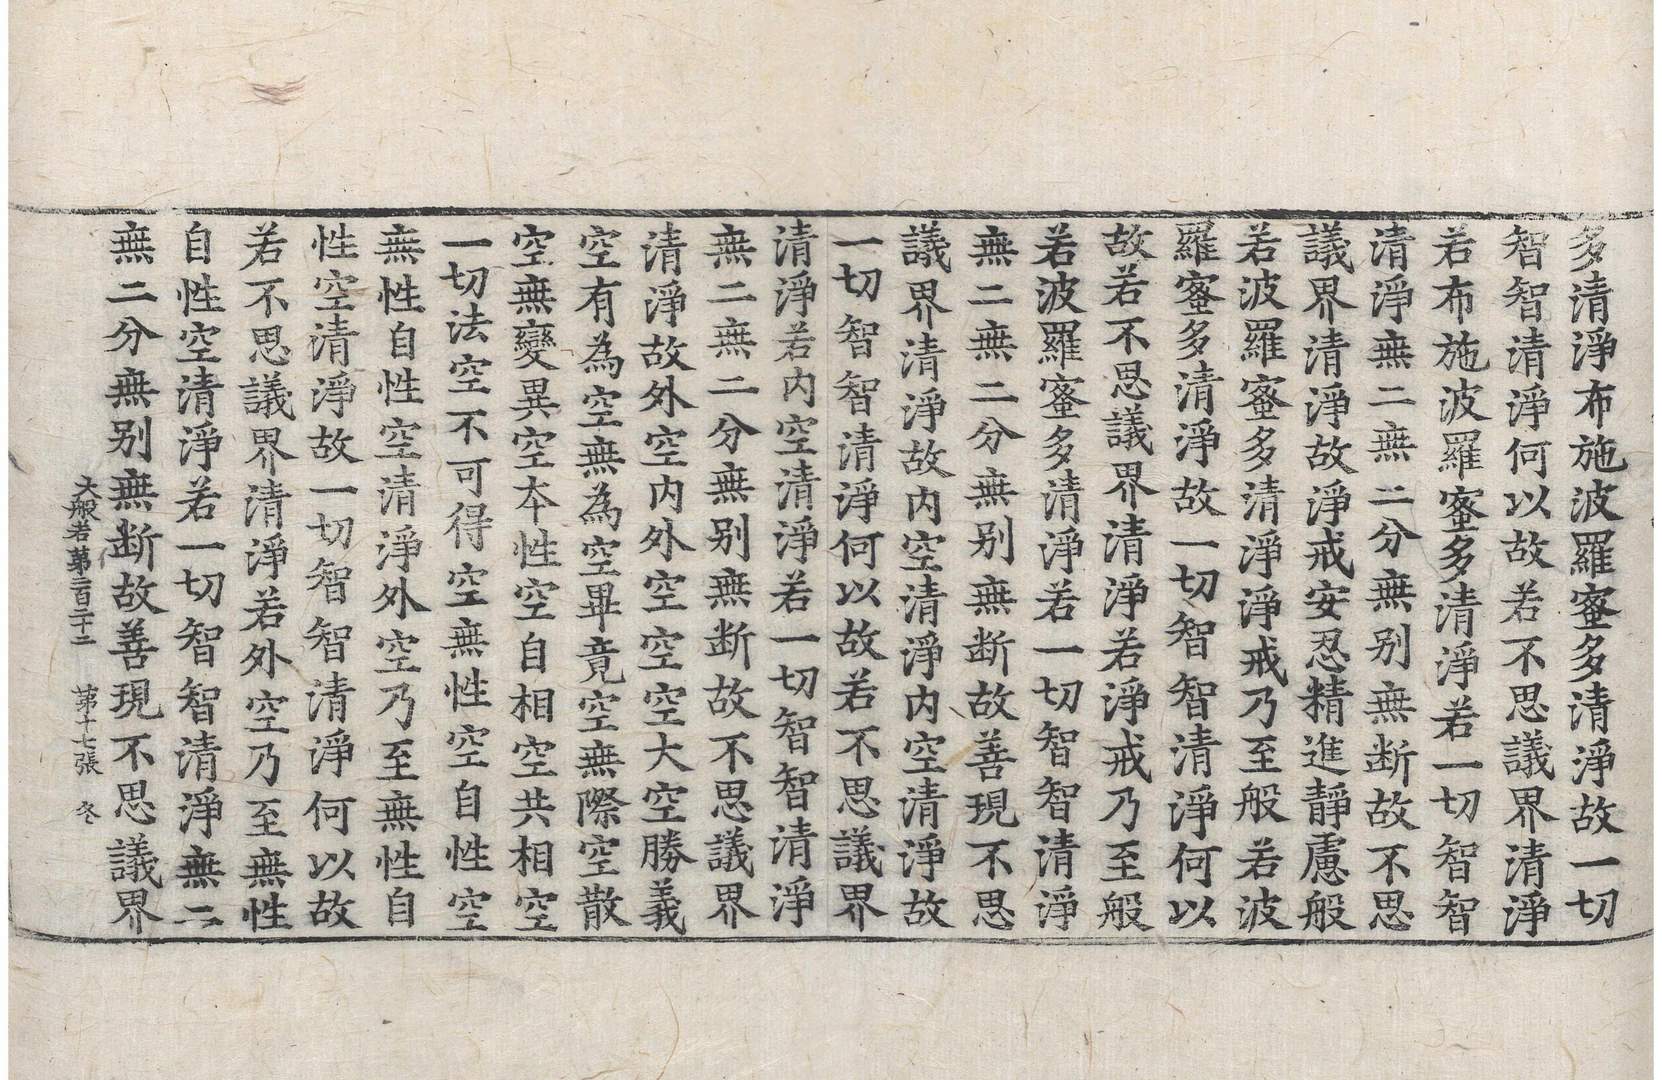 多清淨布施波羅蜜多清淨故一切
智智清淨何以故若不思議界清淨
若布施波羅蜜多清淨若一切智智
清淨無二無二分無别無断故不思
議界清淨故淨戒安忍精進靜慮般
若波羅蜜多清淨淨戒乃至般若波
羅蜜多清淨故一切智智清淨何以
故若不思議界清淨若淨戒乃至般
若波羅蜜多清淨若一切智智清淨
無二無二分無别無断故善現不思
議界清淨故内空清淨内空清淨故
一切智智清淨何以故若不思議界
清淨若内空清淨若一切智智清淨
無二無二分無别無断故不思議界
清淨故外空内外空空空大空勝義
空有為空無為空畢竟空無際空散
空無變異空夲性空自相空共相空
一切法空不可得空無性空自性空
無性自性空清淨外空乃至無性自
性空清淨故一切智智清淨何以故
若不思議界清淨若外空乃至無性
自性空清淨若一切智智清淨無二
無二分無别無断故善現不思議界
大般若第二百二十二 第十七張 冬